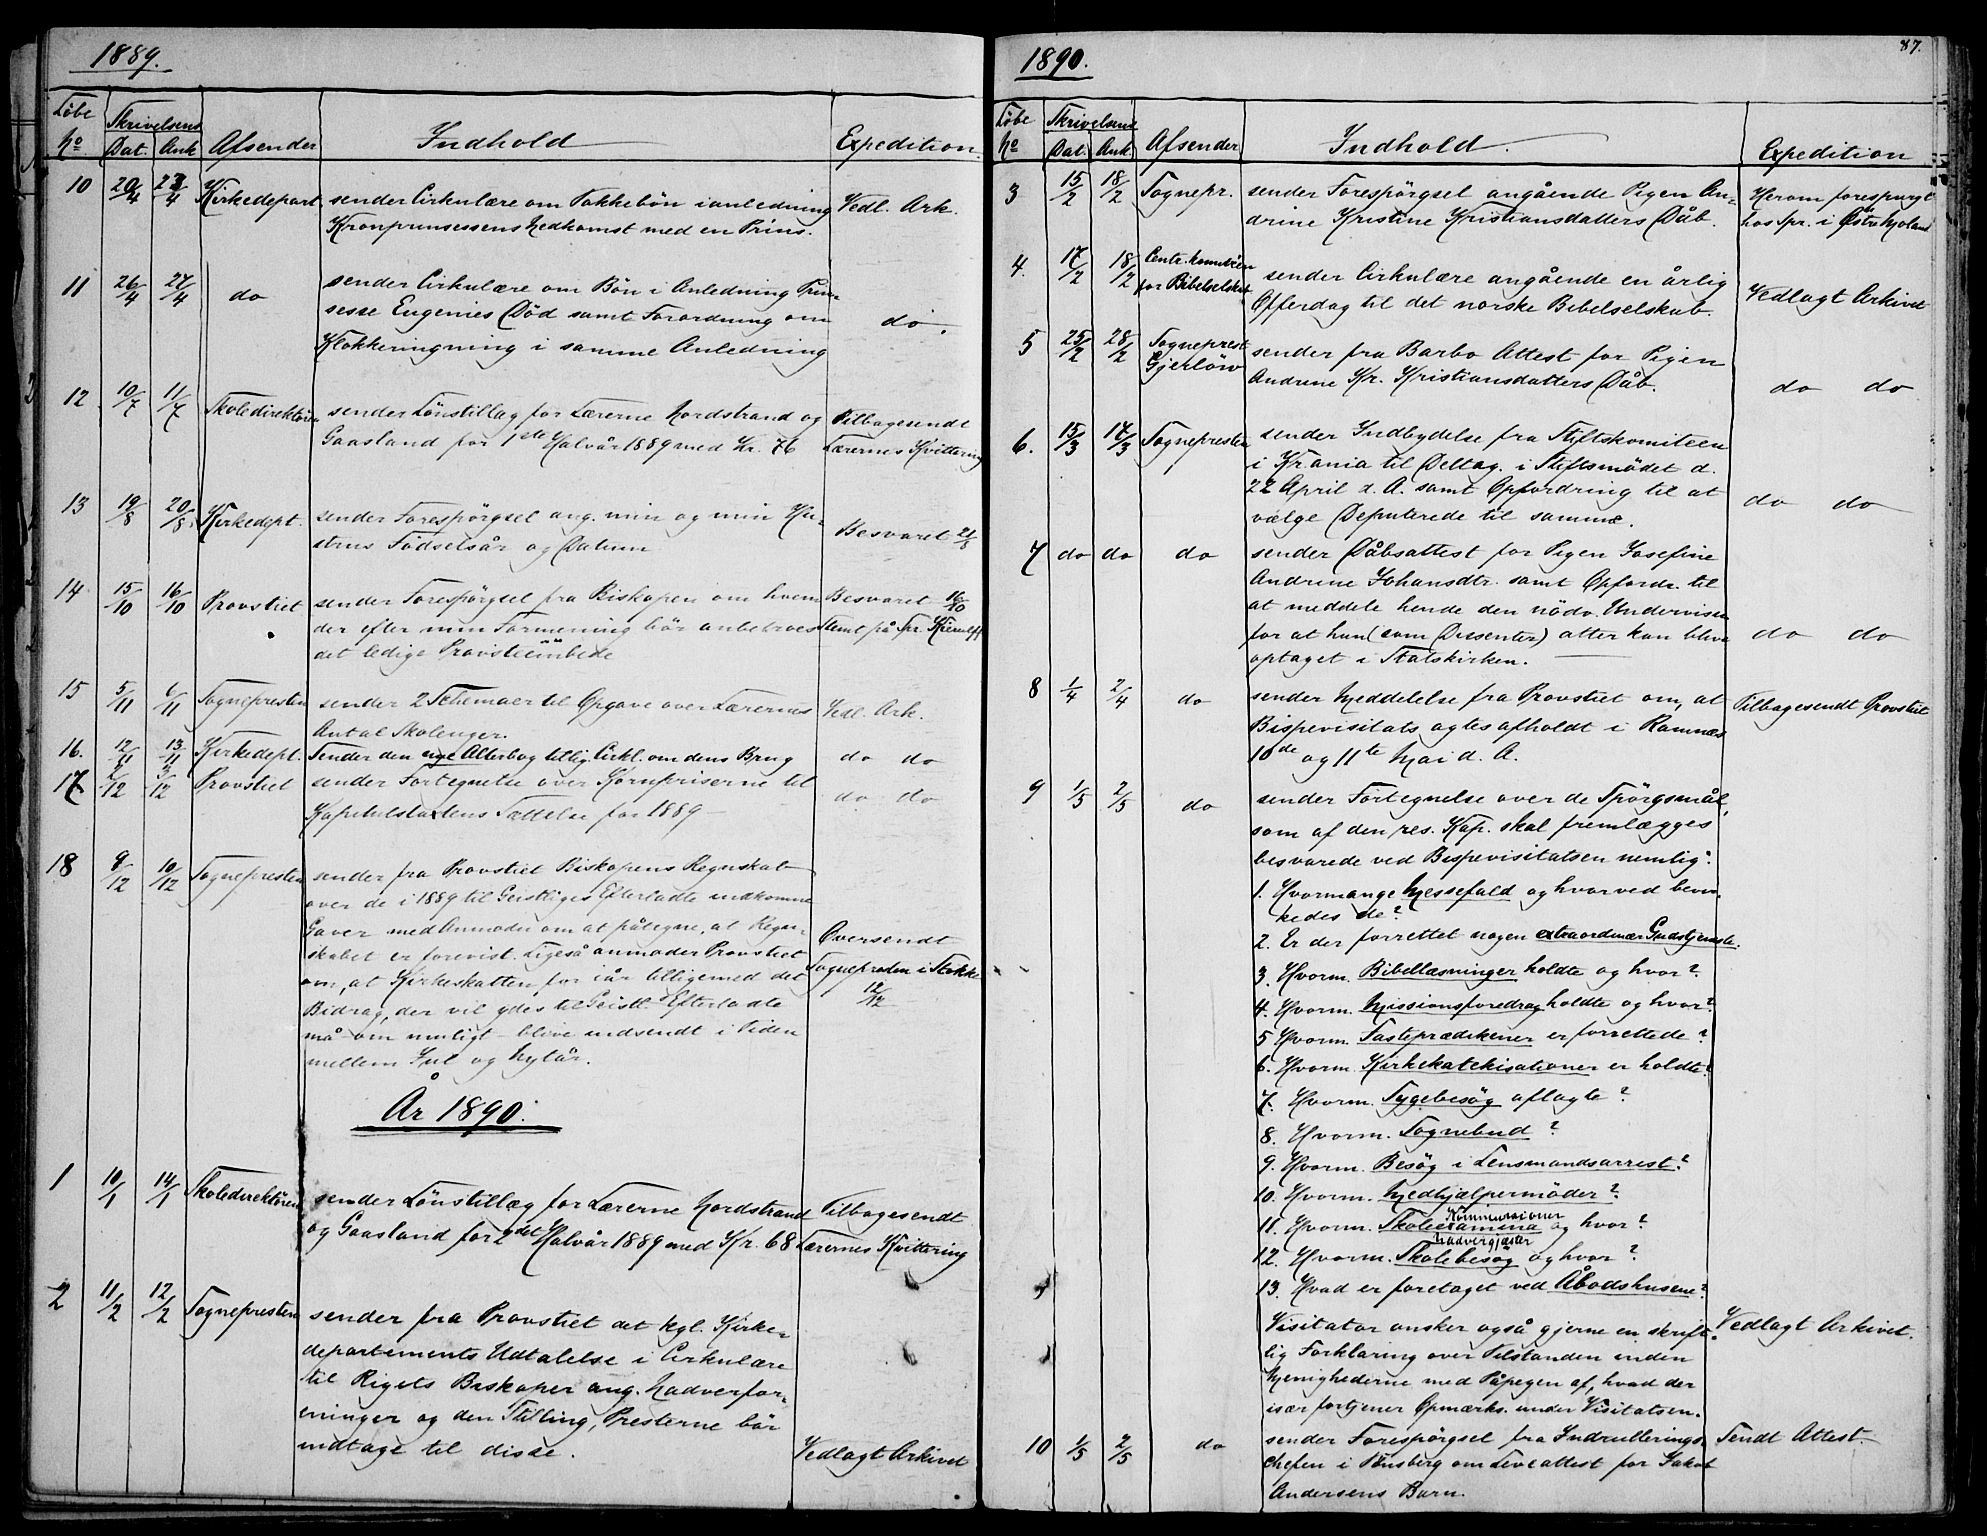 1889.
Löbe No Skrivelsens Dat. Ank. Afsender Indhold Expedition.
10 20/4 23/4 Kirkedepart. sender Cirkulære om Takkebön i anledning Vedl. Ark.
Kronprinsessens Nedkomst med en Prins.
11 26/4 27/4 do sender Cirkulære om Bön i Anledning Prin-
sesse Eugenies Död samt Forordning om do.
Klokkeringning i samme Anledning
12 10/7 11/7 Skoledirektören sender Lönstillæg for Lærerne Nordstrand og Tilbagesendt
Gaasland for 1ste Halvår 1889 med Kr. 76 Lærernes Kvittering
13 19/8 20/8 Kirkedept. sender Forespörgsel ang. min og min Hu-
strus Födselsår og Datum Besvaret 21/8
14 15/10 16/10 Provstiet sender Forespörgsel fra Biskopen om hvem Besvaret 16/10
der efter min Formening bör anbetroes Stemt på Spr. Kierulff
det ledige Provsteembede
15 5/11 6/11 Sognepresten sender 2 Schemaer til Opgave over Lærernes Vedl. Ark.
Antal Skolenger.
16. 12/11 13/11 Kirkedept. Sender den nye Alterbog tillig. Cirkl. om dens Brug do do
17 2/12 3/12 Provstiet sender Fortegnelse over Kornpriserne til do do
Kapitelstaxtens Sættelse for 1889 –
18 9/12 10/12 Sognepresten sender fra Provstiet Biskopens Regnskab
over de i 1889 til Geistliges Efterladte indkomne
Gaver med Anmodn om at påtegne, at Regn-
skabet er forevist. Ligeså anmoder Provstiet Oversendt
om, at Kirkeskatten for iår tilligemed det Sognepresten i Stokke
Bidrag, der vil ydes til Geistl. Efterladte 12/12
må – om muligt – blive indsendt i Tiden
mellem Jul og Nytår.
År 1890.
1 10/1 14/1 Skoledirektören sender Lönstillæg for Lærerne Nordstrand Tilbagesendt
og Gaasland for 2det Halvår 1889 med Kr. 68 Lærernes Kvittering
2 11/2 12/2 Sognepresten sender fra Provstiet det kgl. Kirke-
departements Udtalelse i Cirkulære
til Rigets Biskoper ang. Nadverfor-
eninger og den Stilling, Presterne bör
indtage til disse. Vedlagt Arkivet
87.
1890.
Löbe No Skrivelsens Dat. Ank. Afsender Indhold. Expedition
3 15/2 18/2 Sognepr. sender Forespörgsel angående Pigen An- Herom forespurgt
drine Kristine Kristiansdatters Dåb. hos Spr. i Østre Moland
4. 17/2 18/2 Centr.komitéen for Bibelselskab sender Cirkulære angående en årlig
Offerdag til det norske Bibelselskab. Vedlagt Arkivet
5 25/2 28/2 Sogneprest Gjerlöw sender fra Barbo Attest for Pigen
Andrine Kr. Kristiansdatters Dåb. do do
6. 15/3 17/3 Sognepresten sender Indbydelse fra Stiftskomiteen
i Kr.ania til Deltag. i Stiftsmödet d.
22 April d. A. samt Opfordring til at do do
vælge Deputerede til samme.
7 do do do sender Dåbsattest for Pigen Josefine
Andrine Johansdtr. samt Opfordr. til
at meddele hende den nödv. Undervisn.
for at hun (som Dissenter) atter kan blive do do
optaget i Statskirken.
8 1/4 2/4 do sender Meddelelse fra Provstiet om, at Tilbagesendt Provstiet
Bispevisitats agtes afholdt i Ramnæs
10de og 11te Mai d. A.
9 1/5 2/5 do sender Fortegnelse over de Spörgsmål,
som af den res. Kap. skal fremlægges
besvarede ved Bispevisitatsen nemlig:
1. Hvormange Messefald og hvorved bevir-
kedes de?
2. Er der forrettet nogen extraordinær Gudstjeneste.
3. Hvorm. Bibellæsninger holdte og hvor?
4. Hvorm. Missionsforedrag holdte og hvor?
5 Hvorm. Fasteprædikener er forrettede?
6. Hvorm. Kirkekatekisationer er holdte?
7. Hvorm. Sygebesög aflagte?
8. Hvorm. Sognebud?
9. Hvorm. Besög i Lensmandsarrest?
10. Hvorm. Medhjælpermöder?
Kommunioner
11. Hvorm. Skoleexamina og hvor?
Nadvergjæster
12. Hvorm. Skolebesög og hvor?
13. Hvad er foretaget ved Åbodshusene?
Visitator önsker også gjerne en skrift- Vedlagt Arkivet.
lig Forklaring over Tilstanden inden
Menighederne med Påpegen af, hvad der
især fortjener Opmærks. under Visitatsen.
10 1/5 2/5 do sender Forespörgsel fra Indrullerings- Sendt Attest.
chefen i Tönsberg om Leveattest for Jakob
Andersens Barn.